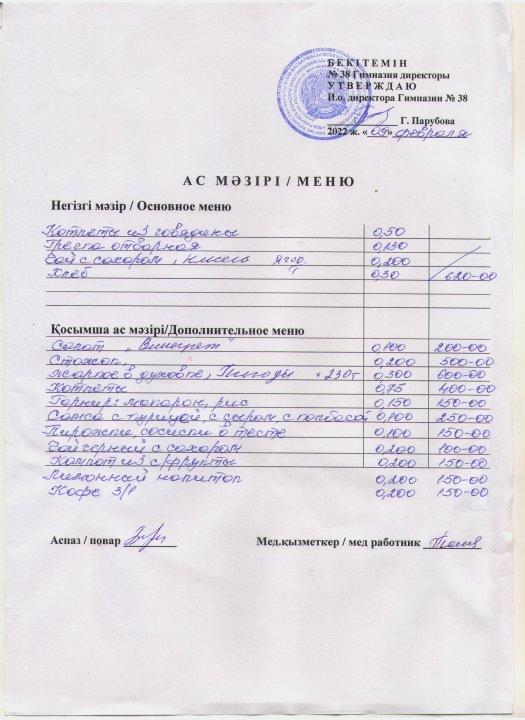 БЕКІТЕМІН
№ 38 Гимназия директоры
УТВЕРЖДАЮ
И.о. директора Гимназии № 38
Г. Парубова
2022 ж. « 09 » февраля
АС МӘЗІРІ / МЕНЮ
Негізгі мәзір / Основное меню
Котлеты из говядины 0,50
Греча отварная 0,130
Чай с сахаром, кисель ягод. 0,200
Хлеб 0,30 620-00
Қосымша ас мәзірі/Дополнительное меню
Салат „Винегрет“ 0,100 200-00
0,200 500-00
Жаркое в духовке, + 230г 0,300 600-00
Котлеты 0,75 400-00
Гарнир: макарон, рис 0,150 150-00
Самса с курицой, с сыром, с колбасой 0,100 250-00
Пирожки, сосиски в тесте 0,100 150-00
Чай черный с сахаром 0,200 100-00
Компот из с/фрукты 0,200 150-00
Лимонный напиток 0,200 150-00
Кофе 3/1 0,200 150-00
Аспаз / повар Мед.қызметкер / мед работник